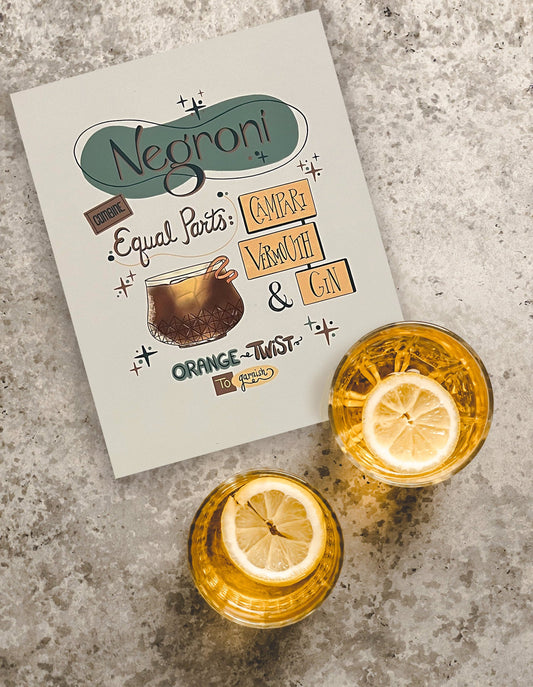 Negroni
COMBINE
Equal Parts:
CAMPARI
VERMOUTH
& GIN
ORANGE TWIST
TO garnish